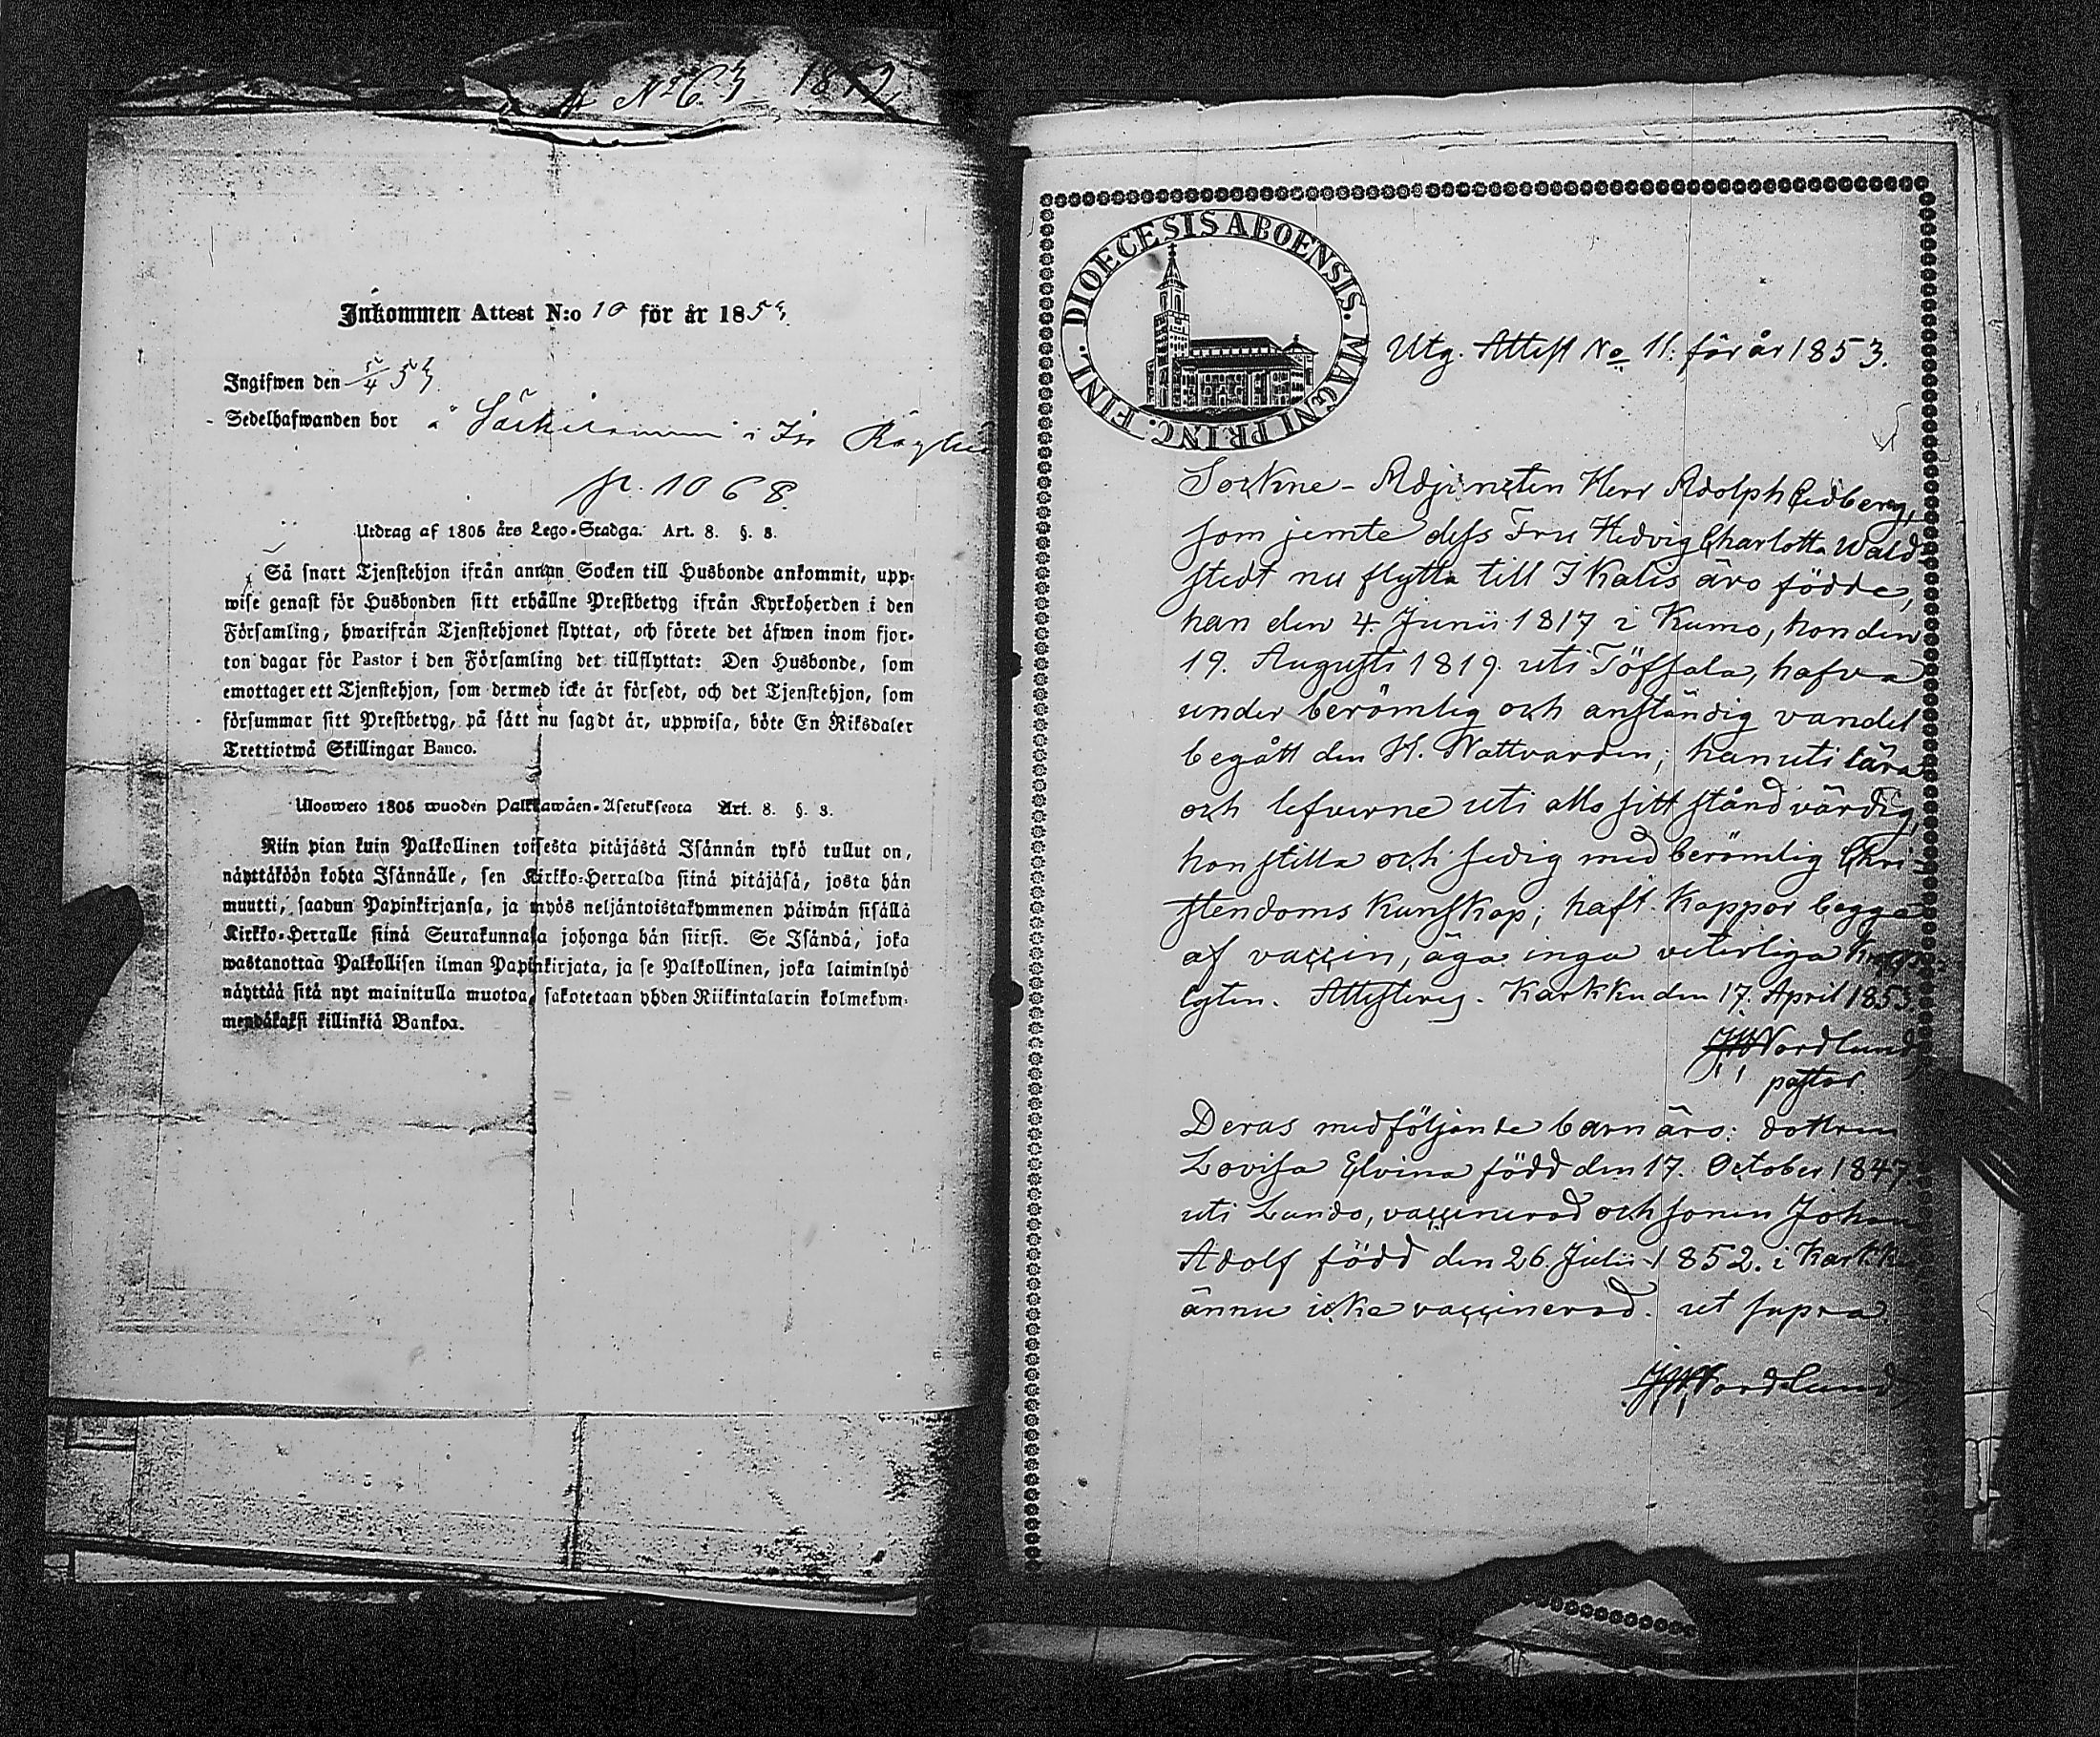 No 63 1852
Inkommen Attest N:o 10 för år 1853.
Ingifwen den 5/4 53
Sedelhafwanden bor å i
p. 1068.
Utdrag af 1805 års Lego-Stadga. Art. 8. §. 8.
Så snart Tjenstehjon ifrån annan Socken till Husbonde ankommit, upp-
wise genast för Husbonden sitt erhållne Prestbetyg ifrån Kyrkoherden i den
Församling, hwarifrån Tjenstehjonet flyttat, och förete det äfwen inom fjor-
ton dagar för Pastor i den Församling det tillflyttat: Den Husbonde, som
emottager ett Tjenstehjon, som dermed icke är försedt, och det Tjenstehjon, som
försummar sitt Prestbetyg, på sätt nu sagdt är, uppwisa, böte En Riksdaler
Trettiotwå Skillingar Banco.
Uloswето 1805 wuoden Palkkawäen-Asetuksesta Art. 8. §. 8.
Niin pian kuin Palkollinen toisesta pitäjästä Isännän tykö tullut on,
näyttäköön kohta Isännälle, sen Kirkko-Herralda siinä pitäjäsä, josta hän
muutti, saadun Papinkirjansa, ja myös neljäntoistakymmenen päiwän sisällä
Kirkko-Herralle siinä Seurakunnasa johonga hän siirsi. Se Isändä, joka
wastanottaa Palkollisen ilman Papinkirjata, ja se Palkollinen, joka laiminlyö
näyttää sitä nyt mainitulla muotoa, sakotetaan yhden Riikintalarin kolmekym-
mendäkaksi killinkiä Bankoa.
DIOECESIS ABOENSIS. MAGNI PRINC. FINL.
Utg. Attest No 11. för år 1853.
Sockne-Adjuncten Herr Adolph Cedberg,
som jemte dess Fru Hedvig Charlotta Wald-
stedt nu flytta till Ikalis äro födde,
han den 4. Junii 1817 i Kumo, hon den
19. Augusti 1819. uti Töfsala, hafva
under berömlig och anständig vandel
begått den H. Nattvarden; han uti lära
och lefverne uti allo sitt stånd värdig,
hon stilla och sedig med berömlig Chri-
stendoms kunskap; haft koppor begge
af vaccin, äga inga veterliga
lyten. Attesterer. Karkku den 17. April 1853.
Nordlund
pastor.
Deras medföljande barn äro: dottren
Lovisa Elvina född den 17. October 1847.
uti Lundo, vaccinerad och sonen Johan
Adolf född den 26. Julii 1852. i Karkku
ännu icke vaccinerad. ut supra.
Nordlund